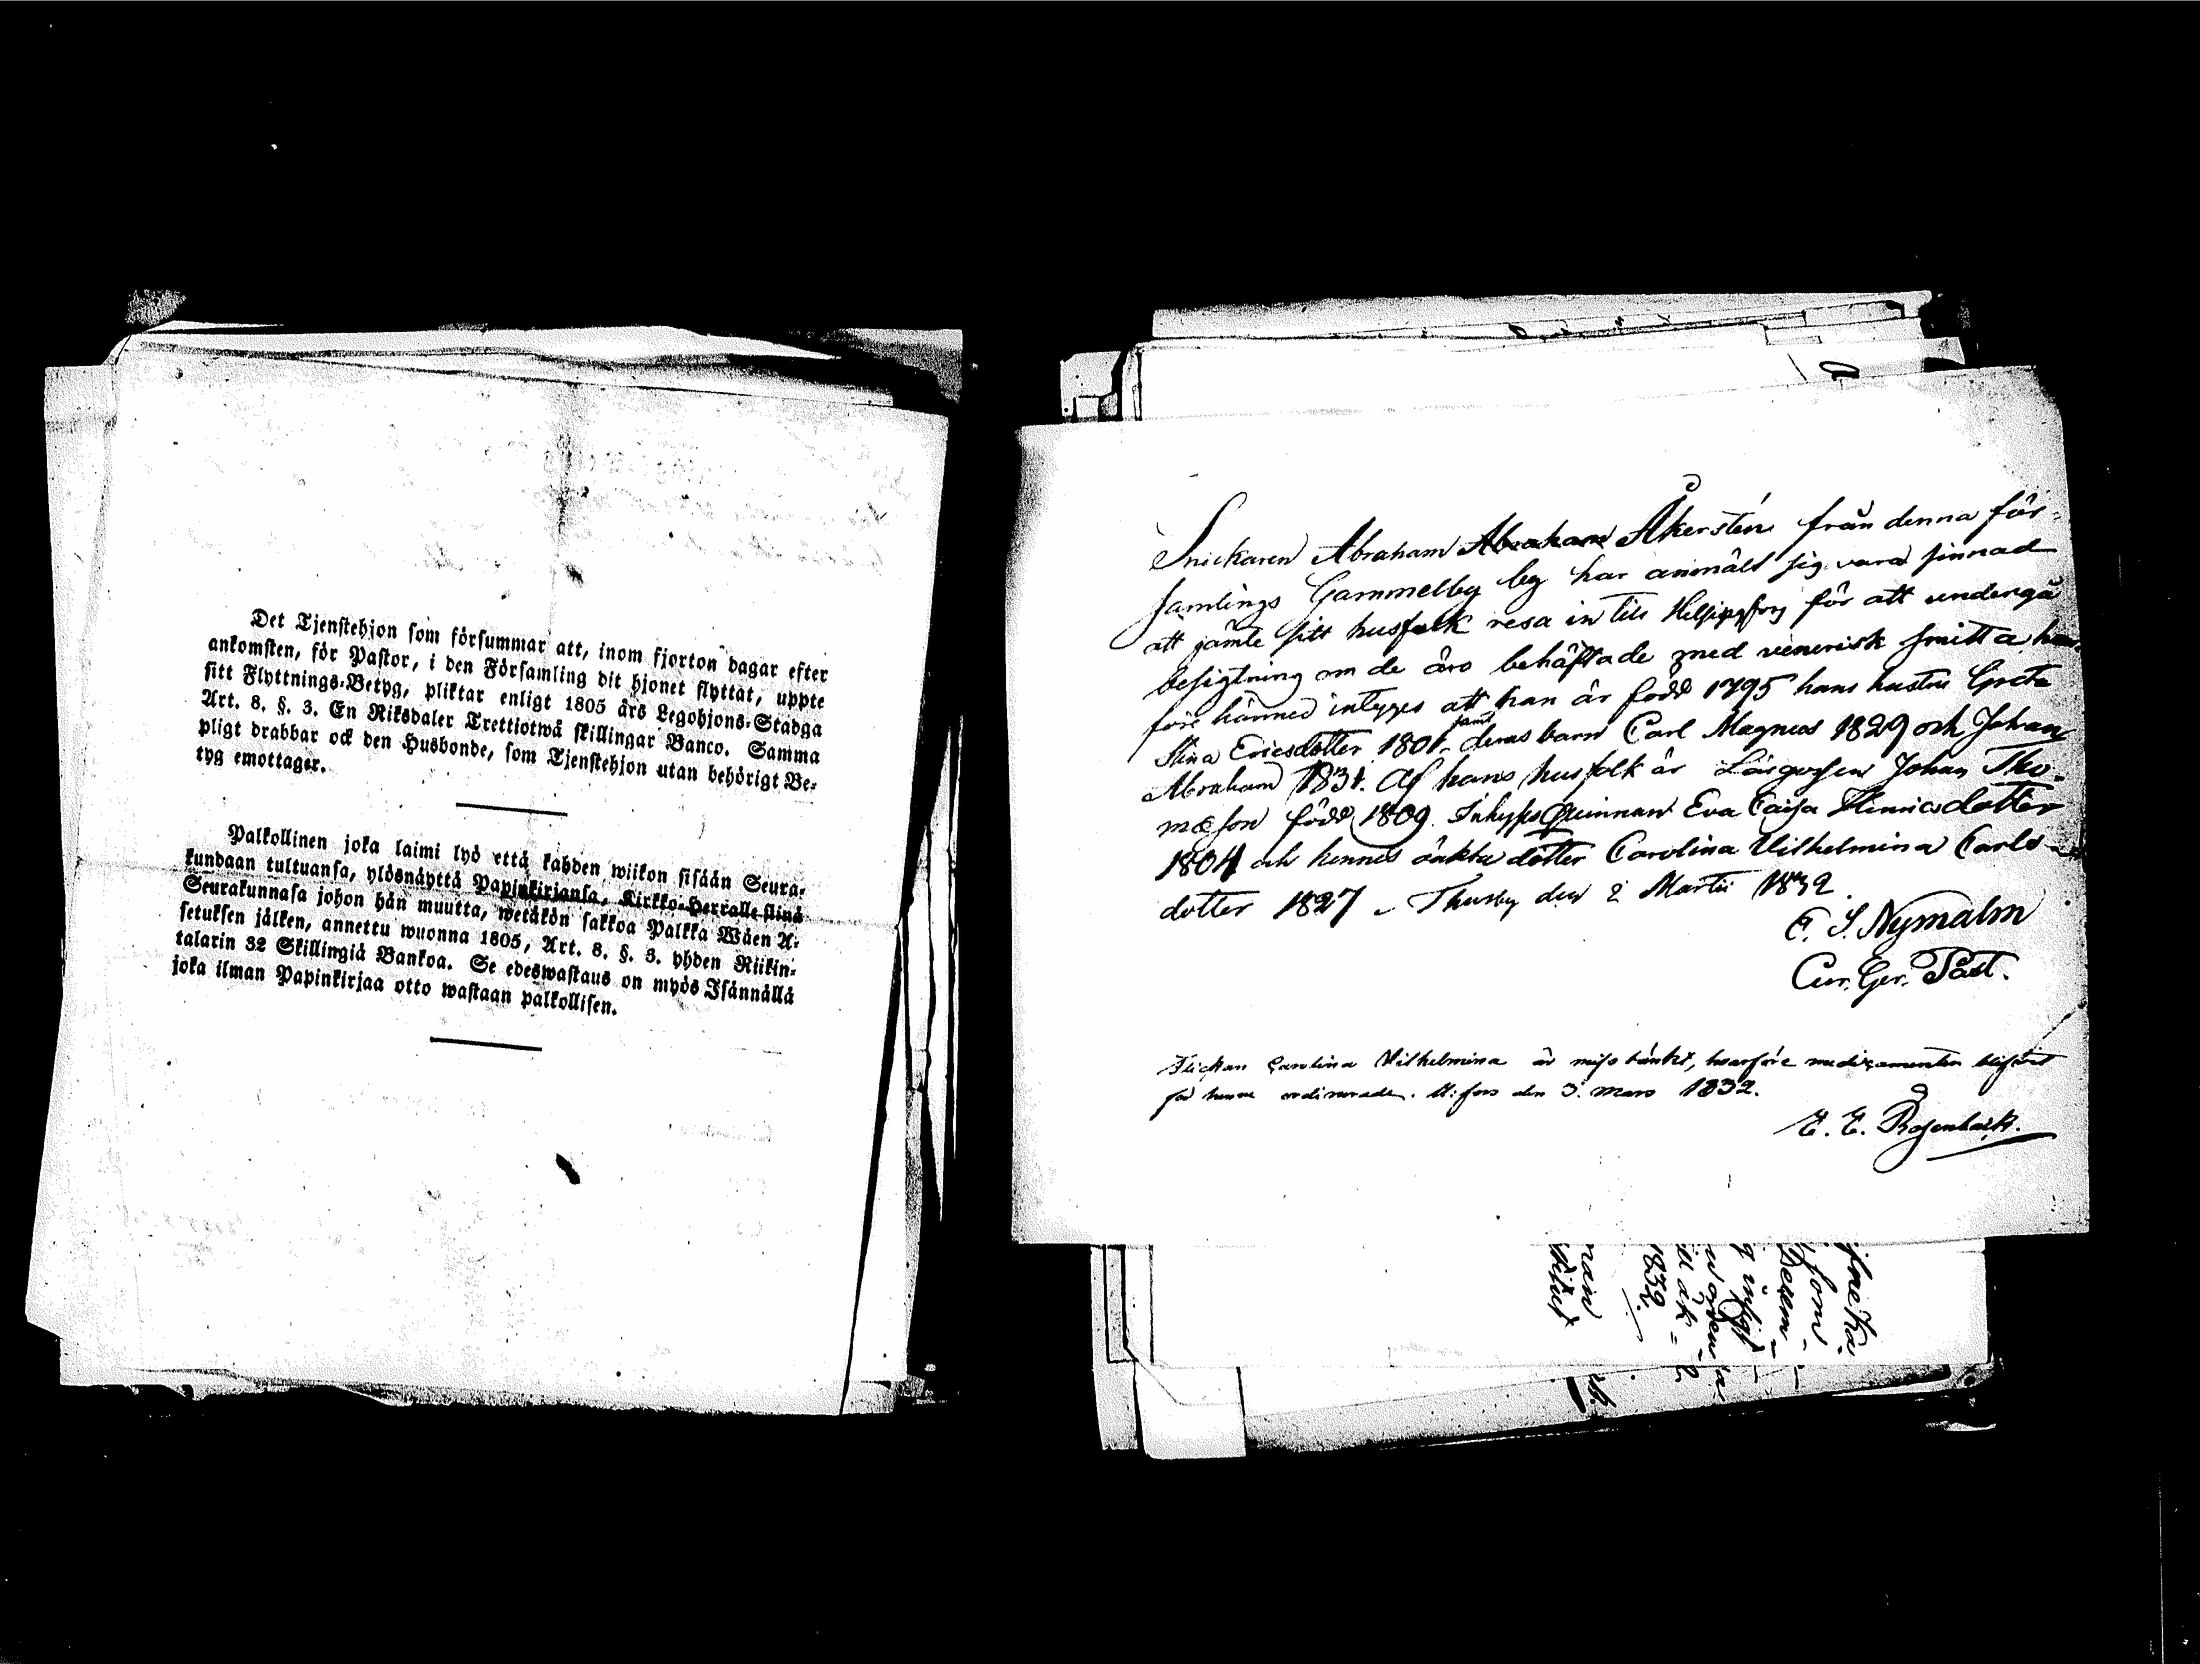 Det Tjenstehjon som försummar att, inom fjorton dagar efter
ankomsten, för Pastor, i den Församling dit hjonet flyttat, uppte
sitt Flyttnings-Betyg, pliktar enligt 1805 års Legohjons-Stadga
Art. 8, §. 3. En Riksdaler Trettiotwå skillingar Banco. Samma
pligt drabbar ock den Husbonde, som Tjenstehjon utan behörigt Be-
tyg emottager.
Palkollinen joka laimi lyö että kahden wiikon sisään Seura-
kundaan tultuansa, ylösnäyttä Papinkirjansa, Kirkko-Herralle siinä
Seurakunnasa johon hän muutta, wetäkön sakkoa Palkka Wäen A-
setuksen jälken, annettu wuonna 1805, Art. 8. §. 3. yhden Riikin-
talarin 32 Skillingiä Bankoa. Se edeswastaus on myös Isännällä
joka ilman Papinkirjaa otto wastaan palkollisen.
Snickaren Abraham Abraham Åkerstén från denna för-
samlings Gammelby by har anmält sig vara sinnad
att jämte sitt husfolk resa in till Helsingfors för att undergå
besigtning om de äro behäftade med venerisk smitta,
före härmed intyges att han är född 1795 hans hustru Greta
Stina Ericsdotter 1801 samt deras barn Carl Magnus 1829 och Johan
Abraham 1831. Af hans husfolk är Lärgossen Johan Tho-
mæson född 1809. Inhyses Qvinnan Eva Caisa Henricsdotter
1804 och hennes äkta dotter Carolina Vilhelmina Carls-
dotter 1827 - Thusby den 2 Martii 1832
E. S. Nymalm
Cur. Ger. Past.
Flickan Carolina Vilhelmina är misstänkt, hvarföre medicamenter blifvit
för henne ordinerade. H:fors den 3. Mars 1832.
E. E. Rosenback.